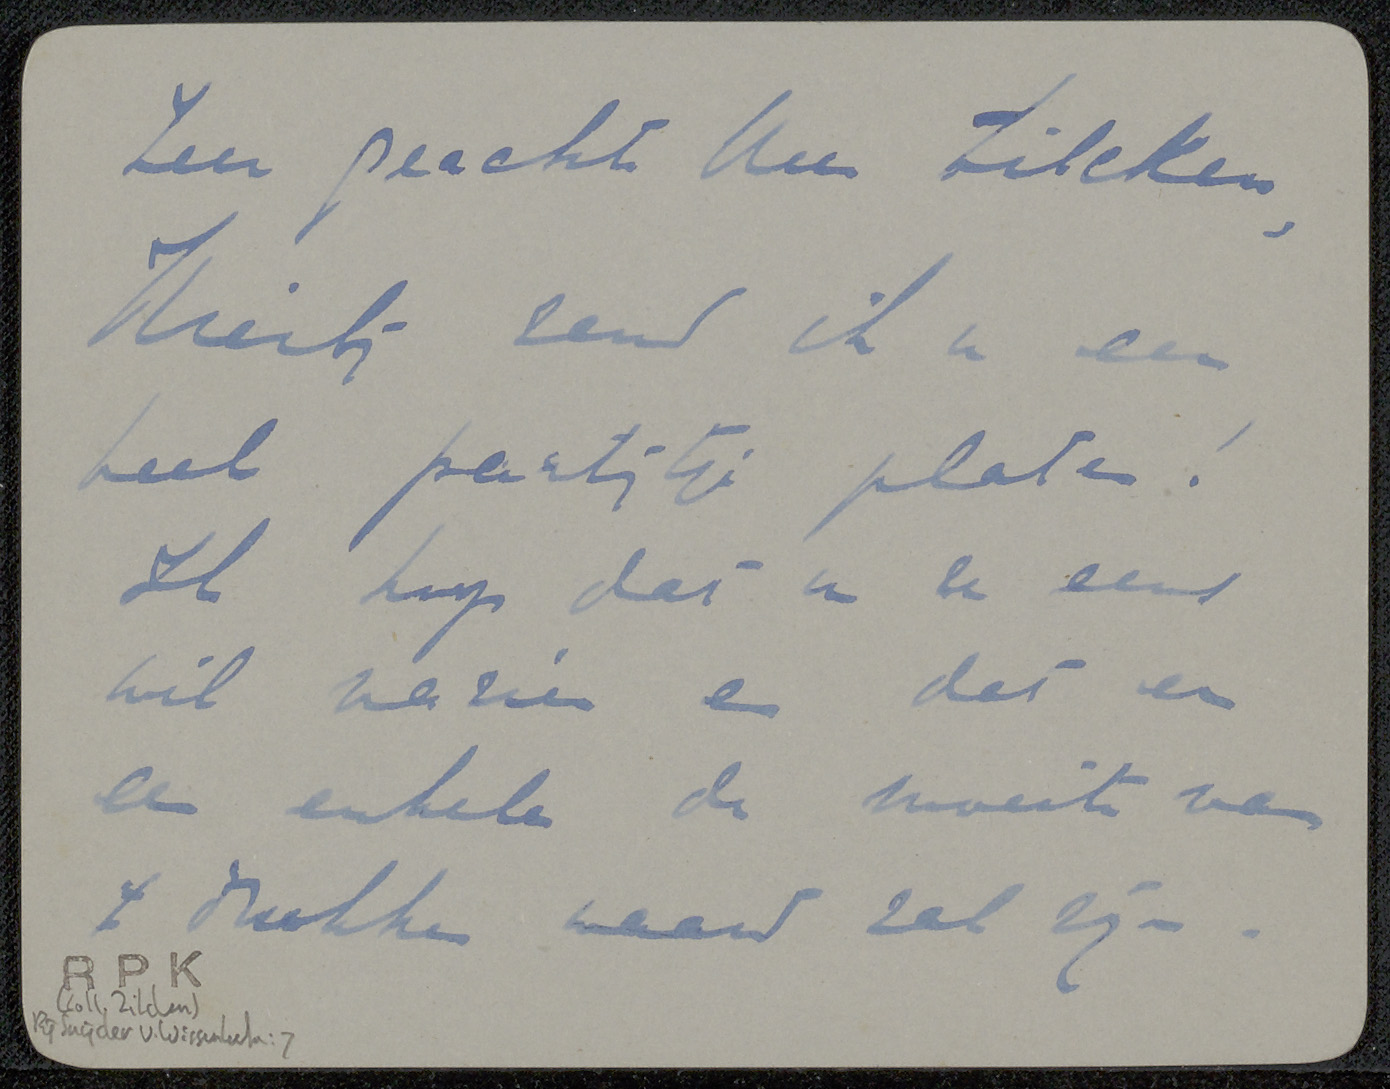 Zeer geachte Heer Zilcken,
Hierbij zend ik u een
heel partijtje platen!
Ik hoop dat u ze eens
wil nazien en dat er
een enkele de moeite van
't drukken waard zal zijn.
RPK
(coll. Zilcken)
Snijder v. Wissenkerke: 7